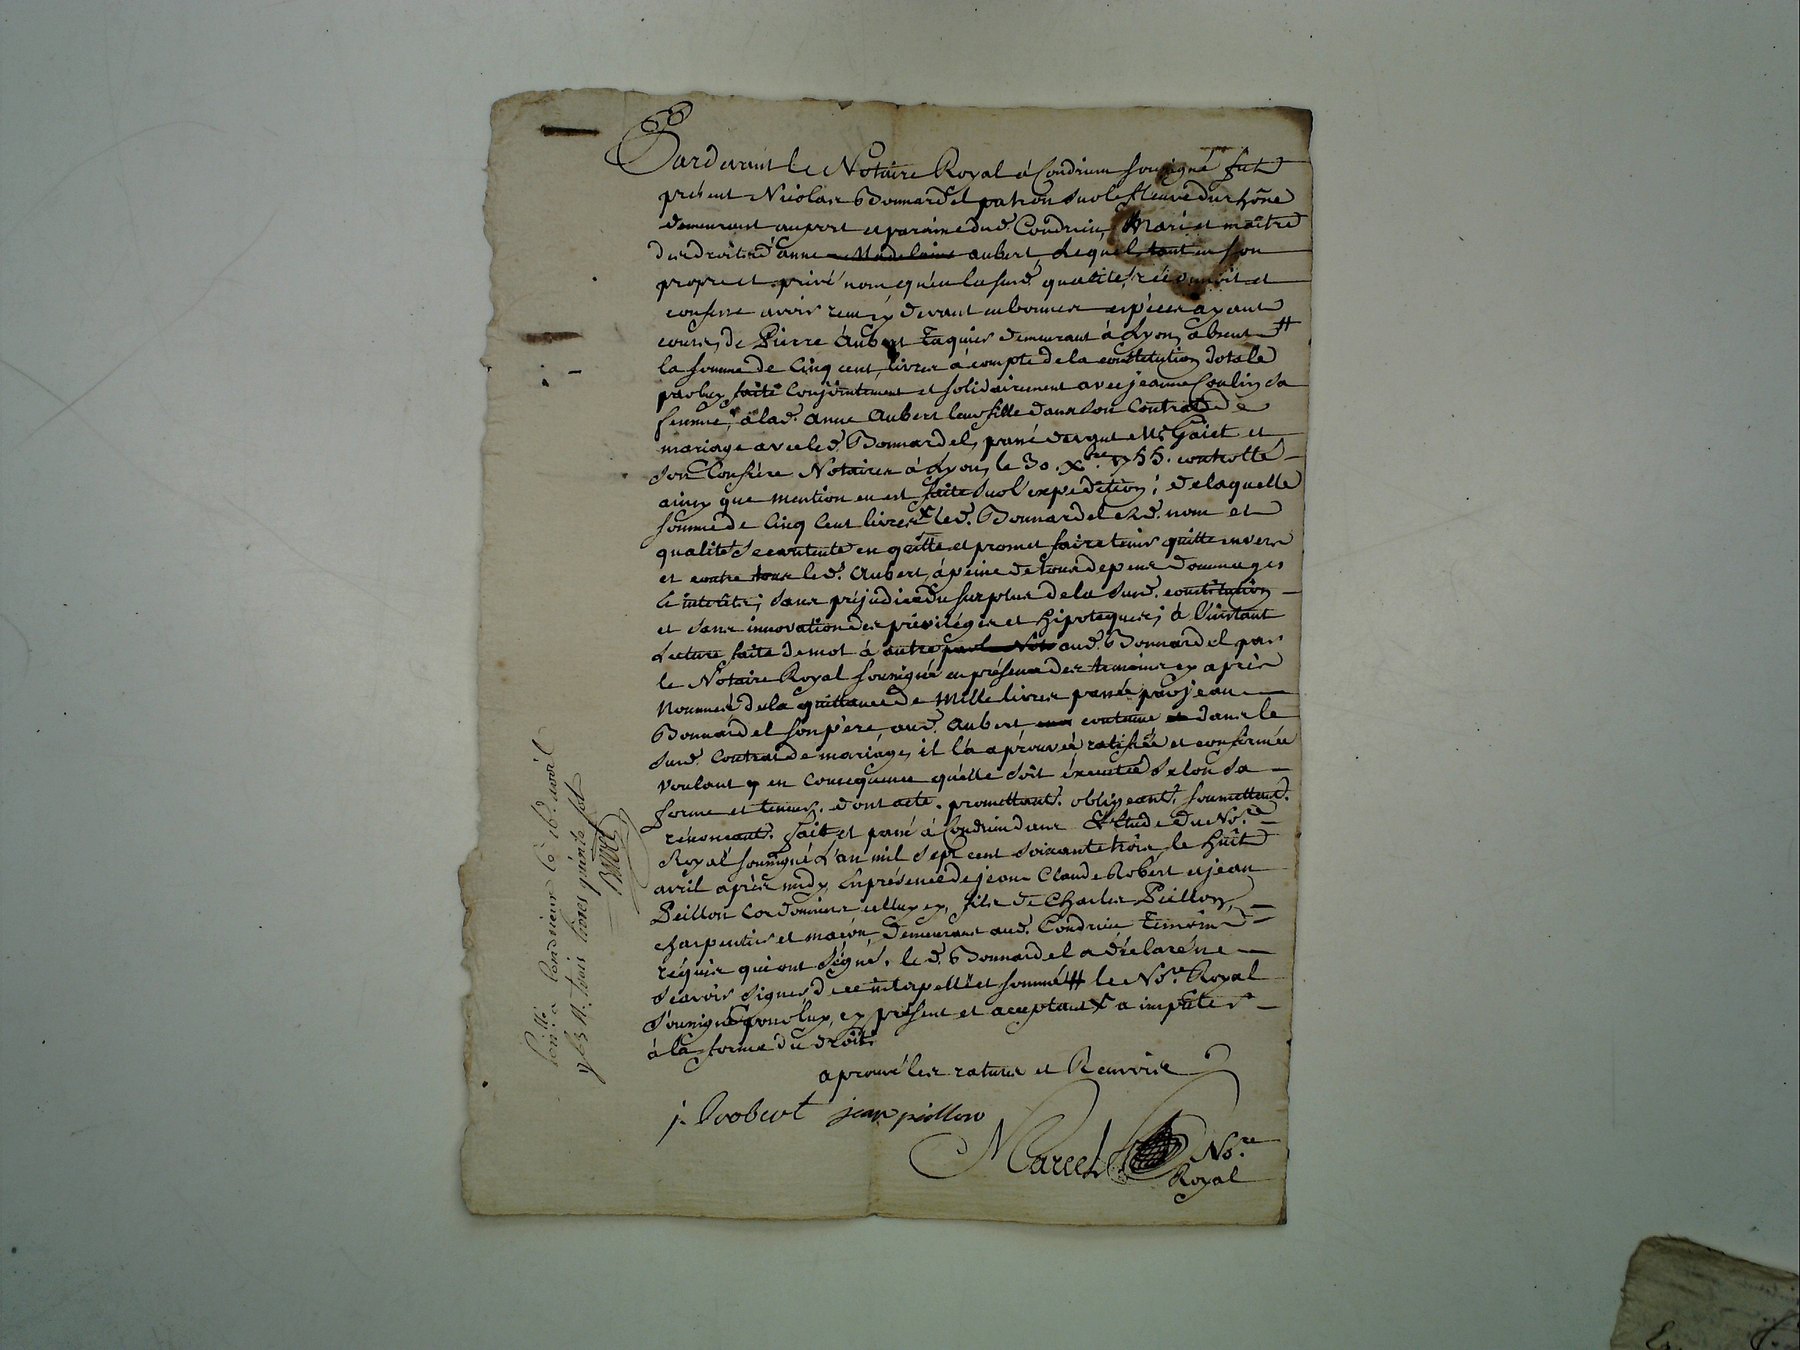 Pardevant le Notaire Royal à Condrieu soussigné fut
présent Nicolas Bonnardel patron sur le fleuve du rhône
demeurant au port et paroisse dud. Condrieu, Mari et maître
des droits d'anne Madelaine aubert, Lequel tant en son
propre et privé nom qu'en la susd. qualité, réconnoit et
confesse avoir reçu cy devant en bonnes espéces ayant
cours, de Pierre Aubert demeurant à Lyon, absent #
la somme de Cinq cent livres à compte de la constitution dotale
par luy faite Conjointement et solidairement avec jeanne Coulin sa
femme, à lad. Anne Aubert leur fille dans son Contrat de
mariage avec led. Bonnardel, passé devant Me Gaiet et
son Confrère Notaires à Lyon, le 30. Xbre 1755. controllé
ainsy que mention en est faite sur l'expedition; de laquelle
somme de Cinq Cent livres X led. Bonnardel esd. nom et
qualité se contente en quitte et promet faire tenir quitte envers
et contre tous led. Aubert, à peine de tous dépens dommages
& interêts; sans préjudice du surplus de la susd. constitution
et sans innovation des priviléges et hipoteques; à l'instant
Lecture faite de mot à autre aud. Bonnardel par
le Notaire Royal soussigné en présence des temoins cy après
Nommés de la quittance de Mille livres passée par jean
Bonnardel son père, aud. Aubert, contenue dans le
susd. Contrat de mariage, il l'a aprouvée ratifiée et confirmée
voulant en consequence qu'elle soit éxecutée selon sa
forme et teneur. dont acte. promettant. obligeant. soumettant.
rénonçant. fait et passé à Condrieu dans L'Etude du No.re
Royal soussigné L'an mil sept cent soixante trois, le huit
avril après midy, En présence de jean Claude Robert et jean
Peillon Cordonnier celluy cy, fils de Charles Peillon,
charpentier et maçon, demeurans aud. Condrieu temoins
réquis qui ont signé. led. Bonnardel a déclaré ne
sçavoir signer de ce interpellé et sommé # le No.re Royal
soussigné pour luy, cy présent et acceptant X a imputer
à la forme du droit.
aprouvé les ratures et Renvois
j. Robert jean peillon
Marcel No.re
Royal
a Condrieux le 16 avril